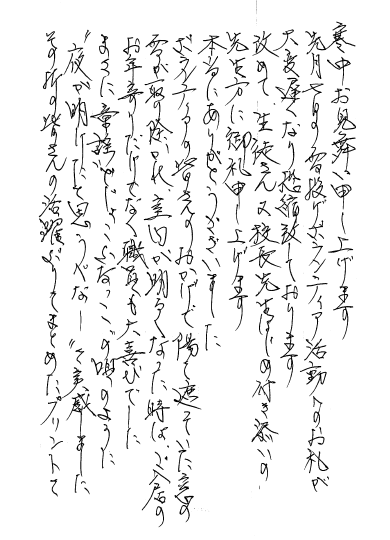 寒中お見舞い申し上げます
先月七日の雪投げボランティア活動へのお礼が
大変遅くなり恐縮致しております
改めて、生徒さん又校長先生はじめ付き添いの
先生方に御礼申し上げます
本当にありがとうございました
ボランティアの皆さんのおかげで陽を遮っていた窓の
雪が取り除かれ室内が明るくなった時は、ご入居の
お年寄りだけでなく職員も大喜びでした
まさに童謡 どじょっこふなっこの唄のように
“夜が明けたと思うべなー”を実感しました
その折の皆さんの活躍ぶりをまとめたプリントを